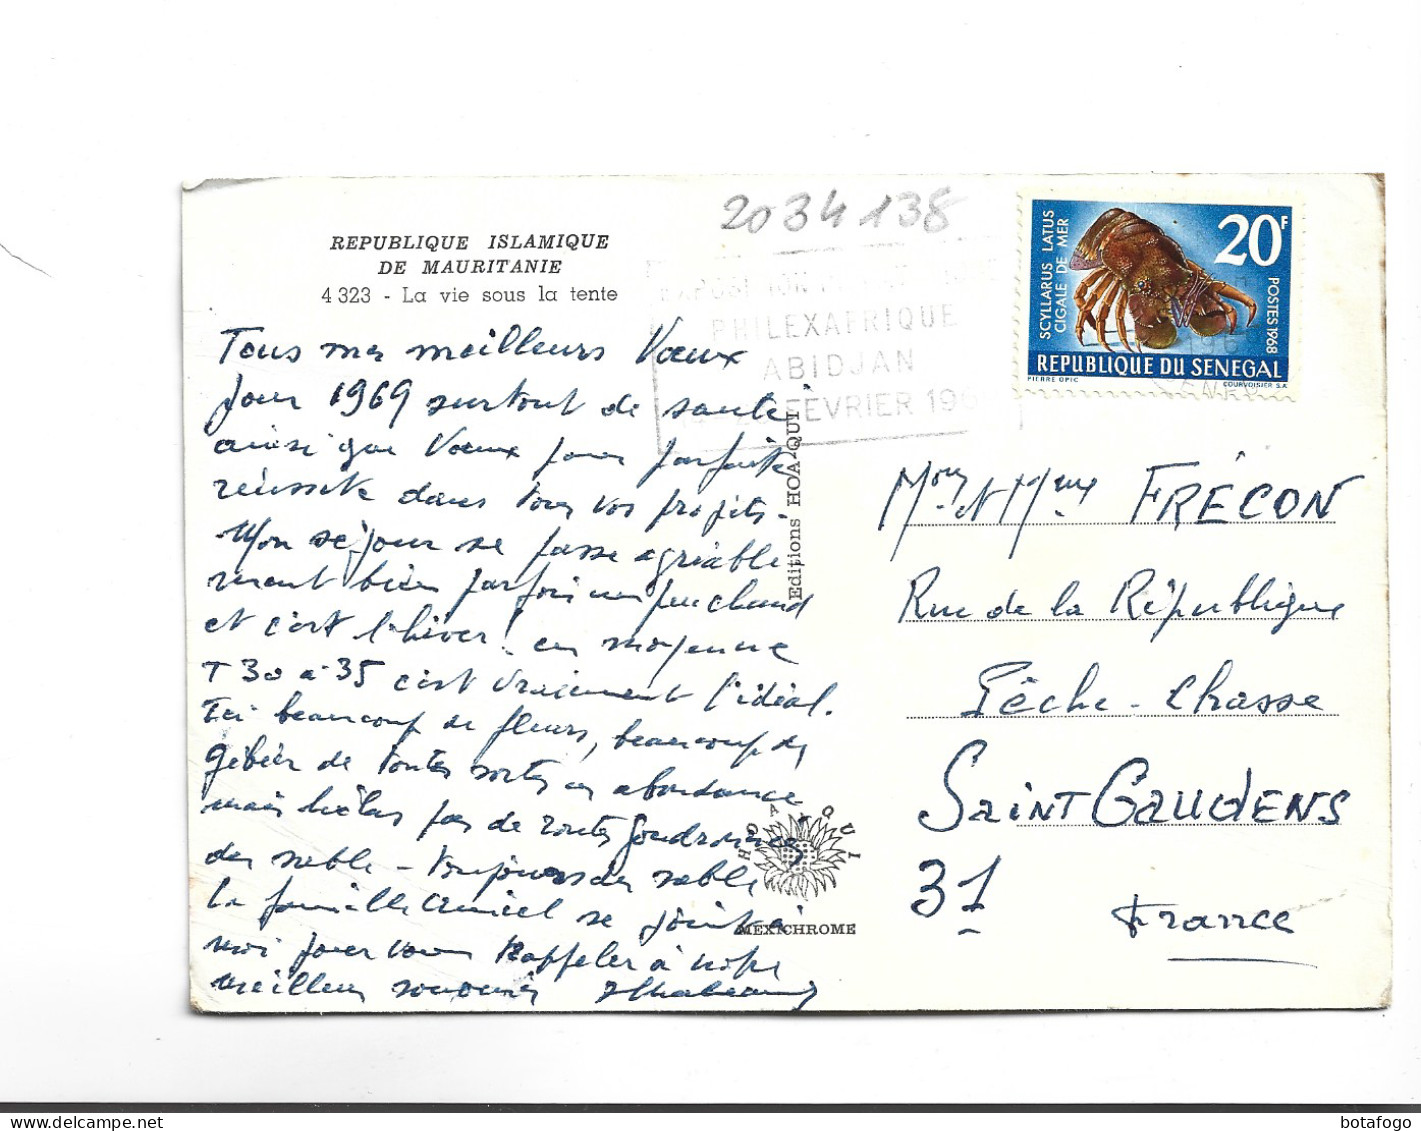 2034138
REPUBLIQUE ISLAMIQUE
DE MAURITANIE
4 323 - La vie sous la tente
PHILEXAFRIQUE
ABIDJAN
FEVRIER 196
SCYLLARUS LATUS
CIGALE DE MER
20F
POSTES 1968
REPUBLIQUE DU SENEGAL
PIERRE OPIC
COURVOISIER S.A
Tous mes meilleurs Vœux
pour 1969 surtout de santé
ainsi que Vœux pour parfaite
réussite dans tous vos projets -
Mon séjour se passe agréable
ment bien parfois un peu chaud
et c'est l'hiver! en moyenne
T 30 à 35 c'est vraiment l'idéal.
Ici beaucoup de fleurs, beaucoup de
gibier de toutes sortes en abondance
mais hélas pas de routes goudronnées
du sable - toujours du sable
La famille se joint à
moi pour vous Rappeler à notre
meilleur souvenir
Editions HOA-QUI
HOA-QUI
MEXICHROME
Mour et Mme FRÉCON
Rue de la République
Pêche - Chasse
SAINT GAUDENS
31
France
botafogo